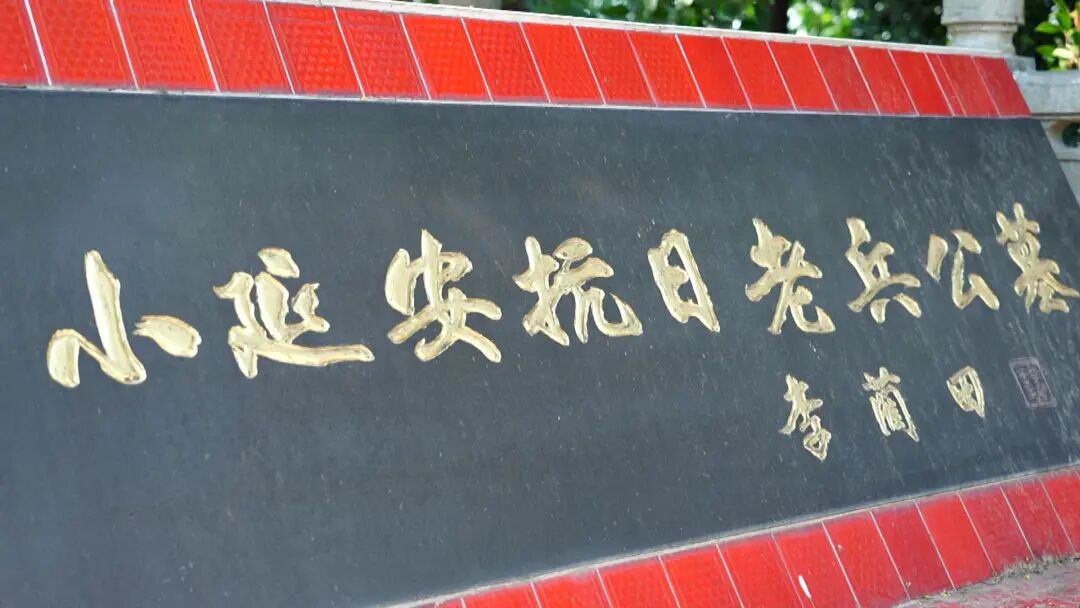 小延安抗日老兵公墓
李蘭田